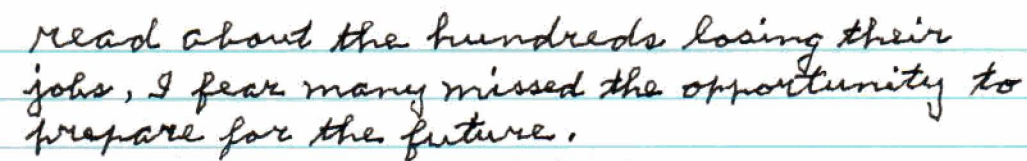 read about the hundreds losing their
jobs, I fear many missed the opportunity to
prepare for the future.